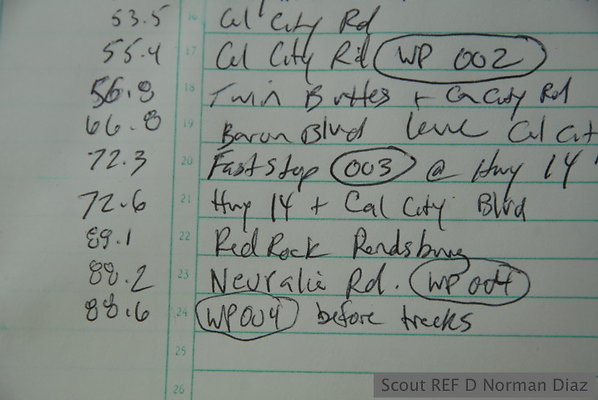 53.5 16 Cal City Rd
55.4 17 Cal City Rd WP 002
56.8 18 Twin Buttes + Cal City Rd
66.8 19 Baron Blvd leave Cal Cit
72.3 20 Faststop 003 @ Hwy 14
72.6 21 Hwy 14 + Cal City Blvd
89.1 22 Red Rock Randsburg
88.2 23 Neuralia Rd. WP 004
88.6 24 WP 004 before tracks
25
26
Scout REF D Norman Diaz